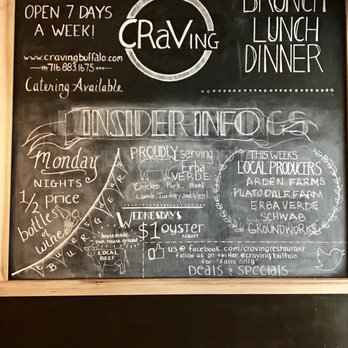 OPEN 7 DAYS
A WEEK!
www.cravingbuffalo.com
716.883.1675
Catering Available
CRaVing
BRUNCH
LUNCH
DINNER
INSIDER INFO
Monday
NIGHTS
1/2 price
bottles
of
wine
BURGER YEAH!
PROUDLY serving
Erba
VERDE
Chicken, Pork, Beef
Lamb, Turkey and Veal!
housemade
our house ground
LOCAL
BEEF
WEDNESDAYS
$1 oyster
NIGHT
THIS WEEKS
LOCAL PRODUCERS
ARDEN FARMS
PLATO DALE FARM
ERBA VERDE
SCHWAB
GROUNDWORKS
us @ facebook.com/cravingrestaurant
follow us on twitter @cravingbuffalo
for "fans only"
DEALS & SPECIALS